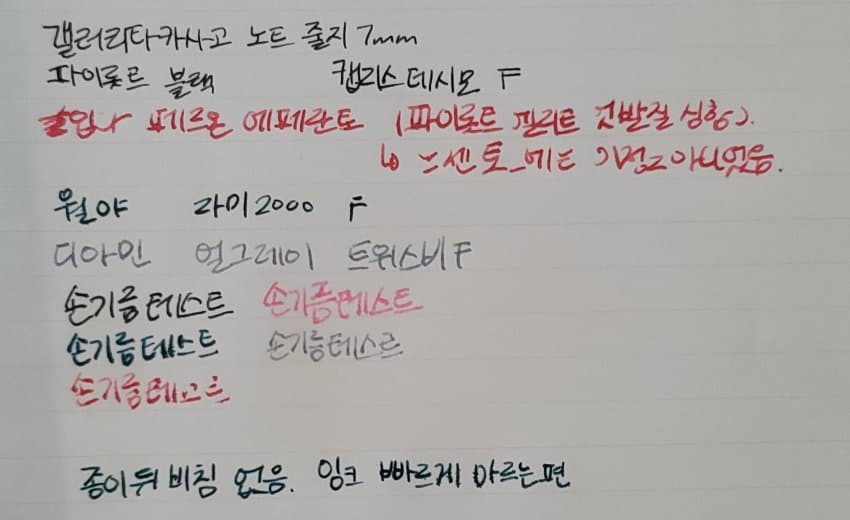 갤러리타카사고 노트 줄지 7mm
파이롯트 블랙 캡리스 데시모 F
페르온 에페란토 (파이롯트 펠리트 헛발질 심함).
↳ 센토_에는
월야 라미2000 F
디아민 얼그레이 트위스비 F
손기름테스트 손기름테스트
손기름테스트 손기름테스트
손기름테스트
종이뒤 비침 없음. 잉크 빠르게 마르는편